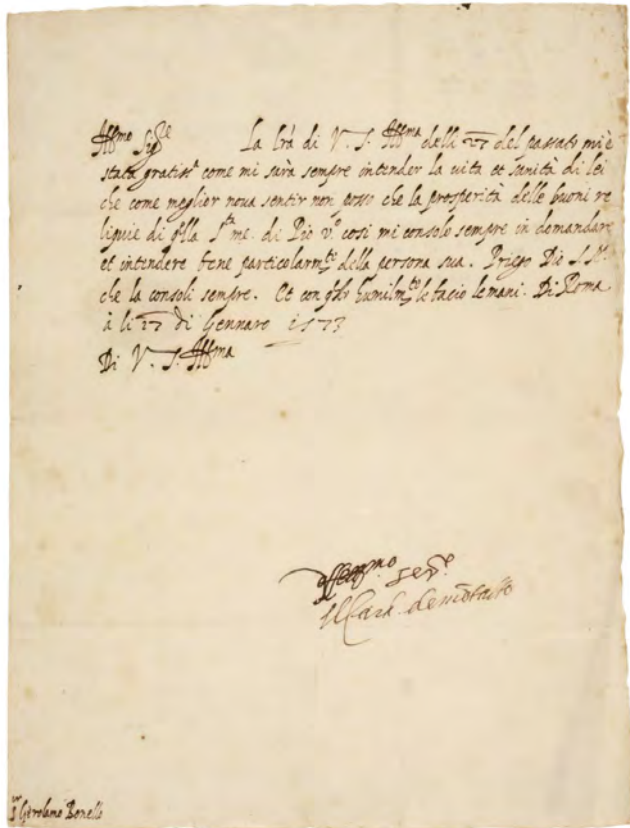 Ill.mo Sig.re La lrã di V. S. Ill.ma delli 27 del passato mi è
stata gratiss.a come mi sarà sempre intender la uita et sanità di lei
che come meglior noua sentir non posso che la prosperità delle buoni re
liquie di q.lla S.ta me. di Pio v.o cosi mi consolo sempre in demandare
et intendere bene particolarm.te della persona sua. Priego Dio S.
che la consoli sempre. Et con humilm.te le bacio le mani. Di Roma
à li 27 di Gennaro 1573
Di V. S. Ill.ma
affett.mo se.re
Il Card. de mõtalto
S.or Gierolamo Bonello